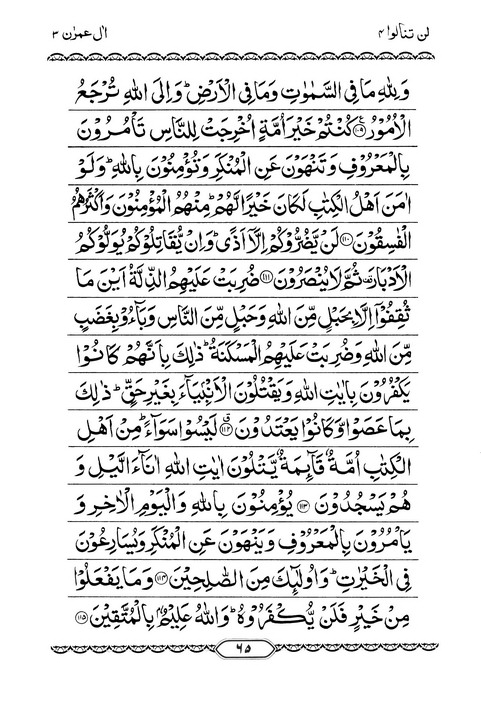 لن تنالوا ۴
اٰل عمرٰن ۳
وَلِلّٰهِ مَا فِي السَّمٰوٰتِ وَمَا فِي الْاَرْضِ ؕ وَاِلَى اللّٰهِ تُرْجَعُ
الْاُمُوْرُ ﴿۱۰۹﴾ كُنْتُمْ خَيْرَ اُمَّةٍ اُخْرِجَتْ لِلنَّاسِ تَاْمُرُوْنَ
بِالْمَعْرُوْفِ وَتَنْهَوْنَ عَنِ الْمُنْكَرِ وَتُؤْمِنُوْنَ بِاللّٰهِ ؕ وَلَوْ
اٰمَنَ اَهْلُ الْكِتٰبِ لَكَانَ خَيْرًا لَّهُمْ ؕ مِنْهُمُ الْمُؤْمِنُوْنَ وَاَكْثَرُهُمُ
الْفٰسِقُوْنَ ﴿۱۱۰﴾ لَنْ يَّضُرُّوْكُمْ اِلَّاۤ اَذًى ؕ وَاِنْ يُّقَاتِلُوْكُمْ يُوَلُّوْكُمُ
الْاَدْبَارَ ۟ ثُمَّ لَا يُنْصَرُوْنَ ﴿۱۱۱﴾ ضُرِبَتْ عَلَيْهِمُ الذِّلَّةُ اَيْنَ مَا
ثُقِفُوْۤا اِلَّا بِحَبْلٍ مِّنَ اللّٰهِ وَحَبْلٍ مِّنَ النَّاسِ وَبَآءُوْ بِغَضَبٍ
مِّنَ اللّٰهِ وَضُرِبَتْ عَلَيْهِمُ الْمَسْكَنَةُ ؕ ذٰلِكَ بِاَنَّهُمْ كَانُوْا
يَكْفُرُوْنَ بِاٰيٰتِ اللّٰهِ وَيَقْتُلُوْنَ الْاَنْۢبِيَآءَ بِغَيْرِ حَقٍّ ؕ ذٰلِكَ
بِمَا عَصَوْا وَّكَانُوْا يَعْتَدُوْنَ ﴿۱۱۲﴾ لَيْسُوْا سَوَآءً ؕ مِنْ اَهْلِ
الْكِتٰبِ اُمَّةٌ قَآئِمَةٌ يَّتْلُوْنَ اٰيٰتِ اللّٰهِ اٰنَآءَ الَّيْلِ وَ
هُمْ يَسْجُدُوْنَ ﴿۱۱۳﴾ يُؤْمِنُوْنَ بِاللّٰهِ وَالْيَوْمِ الْاٰخِرِ وَ
يَاْمُرُوْنَ بِالْمَعْرُوْفِ وَيَنْهَوْنَ عَنِ الْمُنْكَرِ وَيُسَارِعُوْنَ
فِي الْخَيْرٰتِ ؕ وَاُولٰٓئِكَ مِنَ الصّٰلِحِيْنَ ﴿۱۱۴﴾ وَمَا يَفْعَلُوْا
مِنْ خَيْرٍ فَلَنْ يُّكْفَرُوْهُ ؕ وَاللّٰهُ عَلِيْمٌۢ بِالْمُتَّقِيْنَ ﴿۱۱۵﴾
۶۵